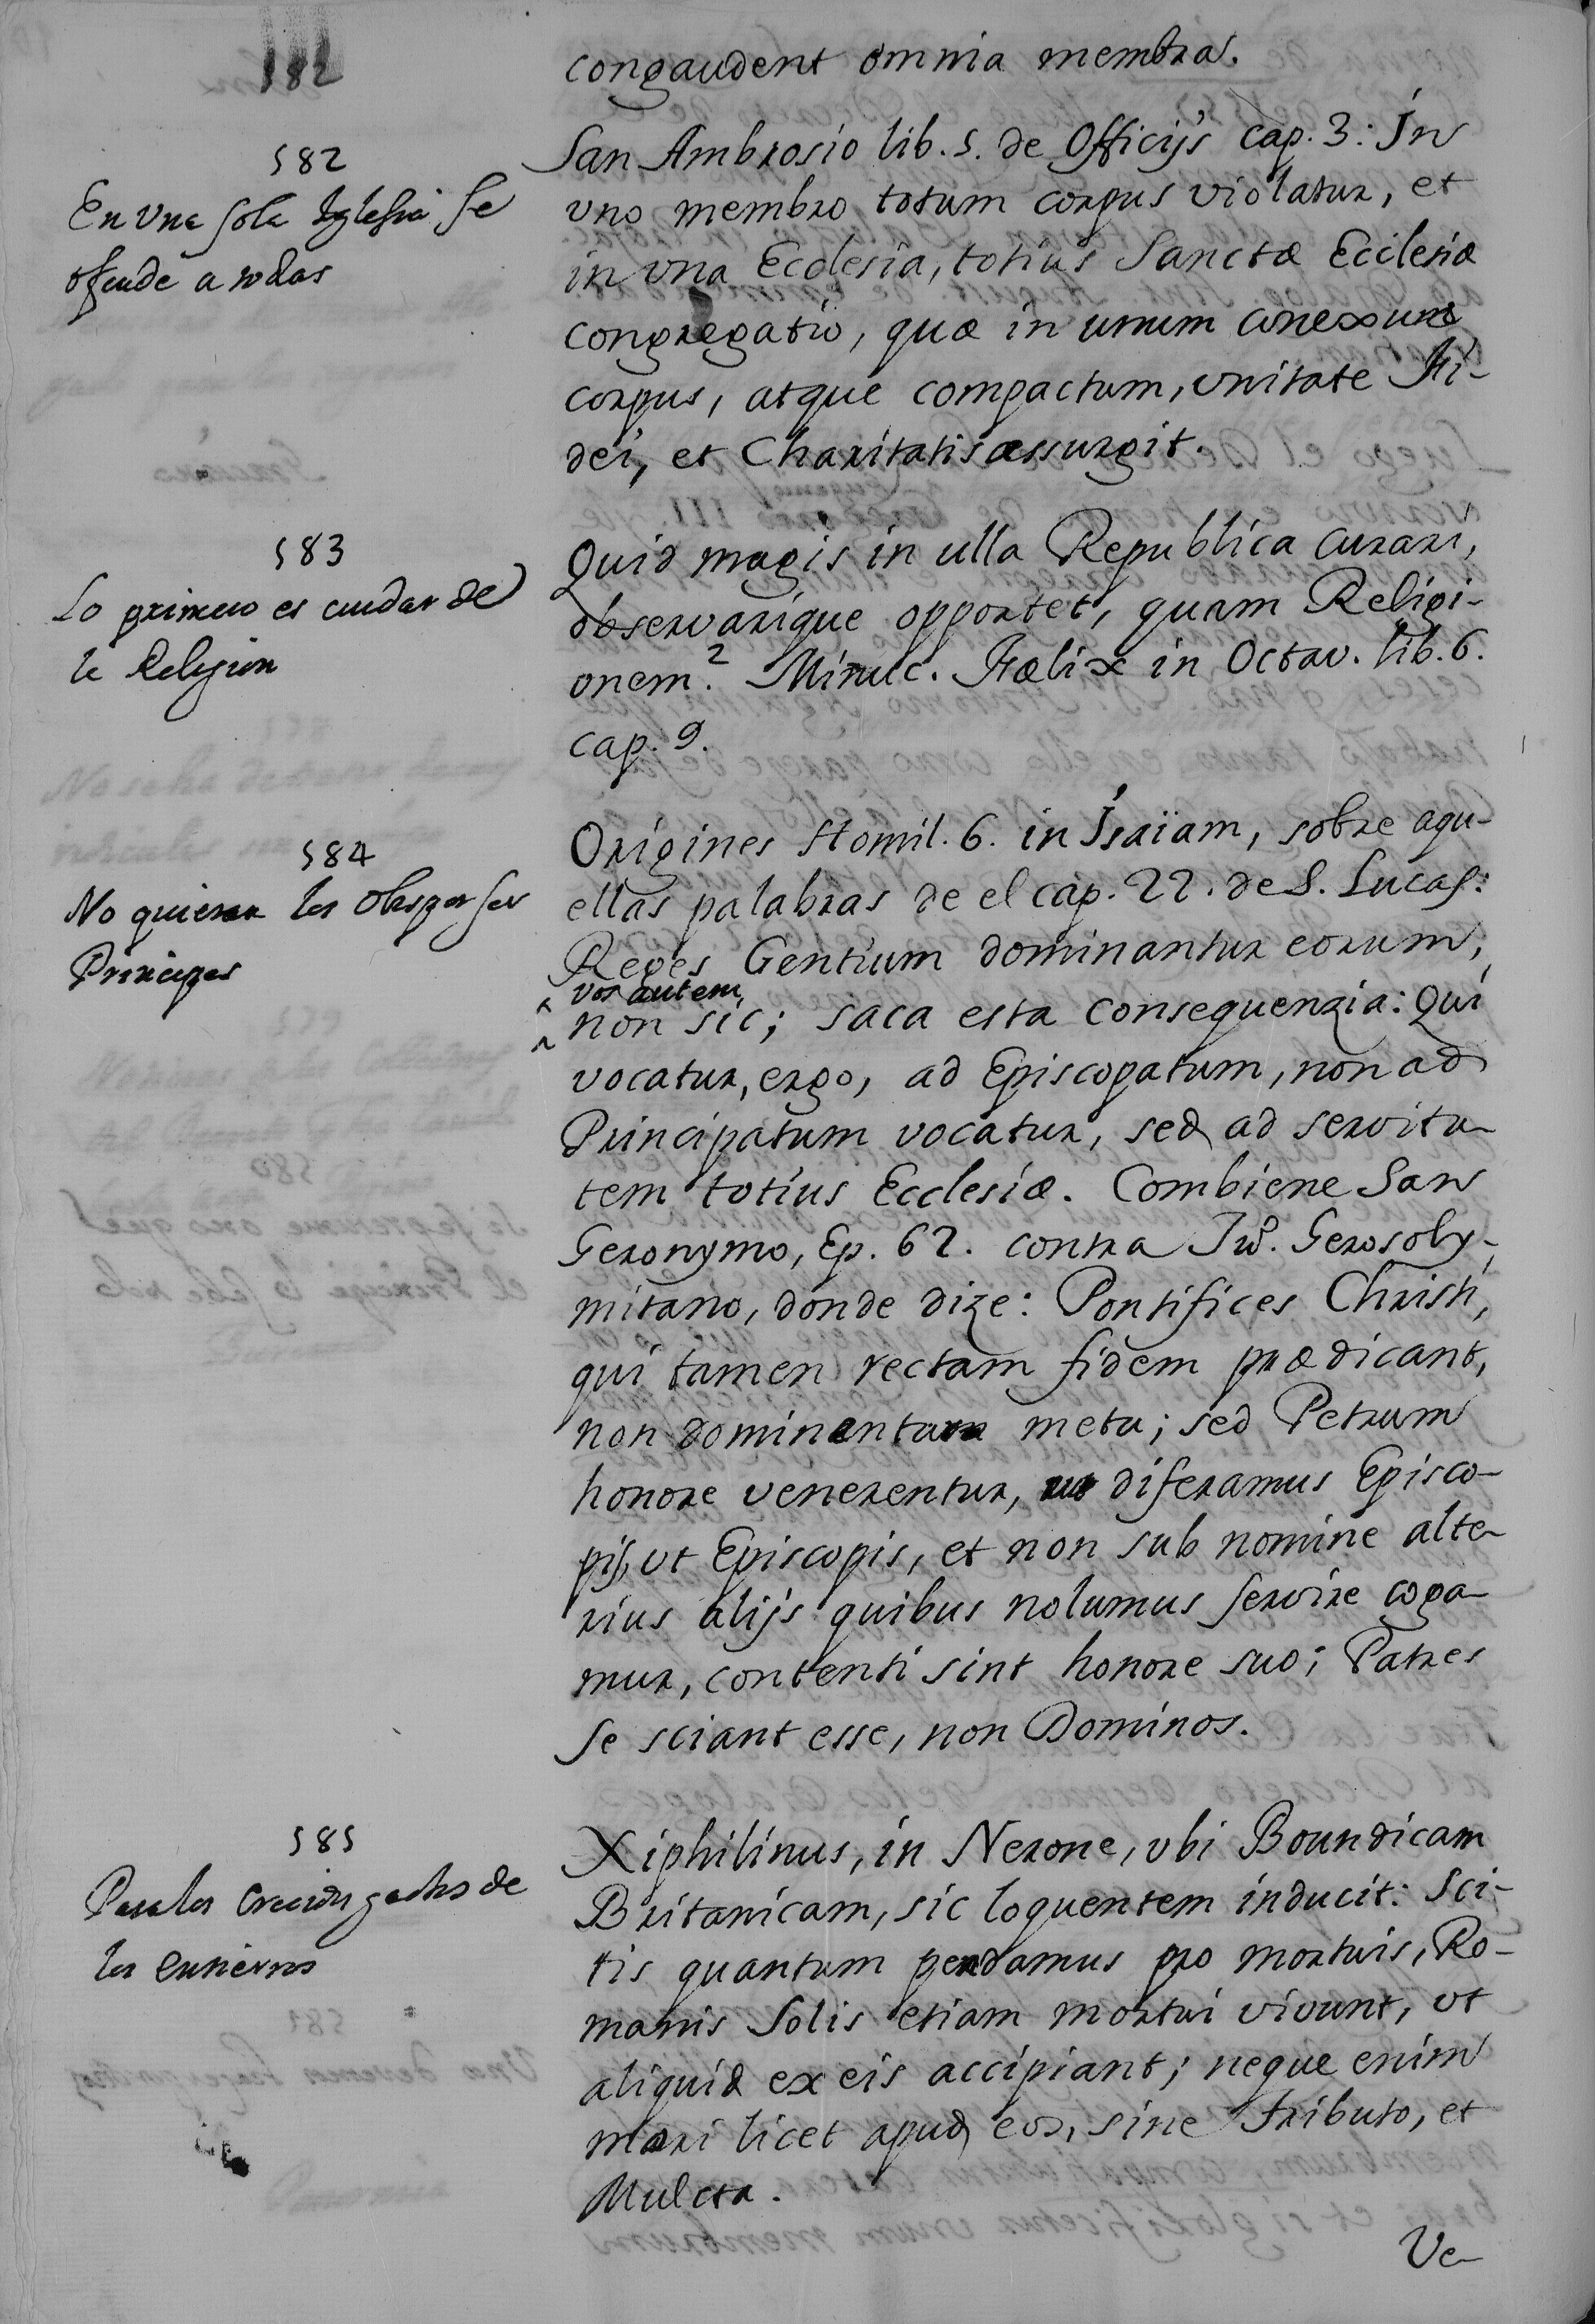 182
congaudent omnia membra.
582
En una sola Iglesia se
ofende a todas
San Ambrosio lib. 5. de Officijs cap. 3: In
uno membro totum corpus violatur, et
in una Ecclesia, totius Sanctæ Ecclesiæ
congregatio, quæ in unum conexum
corpus, atque compactum, unitate Fi-
dei, et Charitatis assurgit.
583
Lo primero es cuidar de
la Religion
Quid magis in ulla Republica curari,
observarique opportet, quam Religi-
onem? Minuc. Fælix in Octav. lib. 6.
cap. 9.
584
No quieran los Obispos ser
Principes
Origines Homil. 6. in Isaïam, sobre aqu-
ellas palabras de el cap. 22. de S. Lucas:
Reges Gentium dominantur eorum,
vos autem
non sic; saca esta consequenzia: Qui
vocatur, ergo, ad Episcopatum, non ad
Principatum vocatur, sed ad servitu-
tem totius Ecclesiæ. Combiene San
Geronymo, Ep. 62. contra Jū. Gerosoly-
mitano, donde dize: Pontifices Christi,
qui tamen rectam fidem prædicant,
non dominantum metu; sed Petrum
honore venerentur, ut diferamus Episco-
pis, ut Episcopis, et non sub nomine alte-
rius alijs quibus nolumus servire coga-
mur, contenti sint honore suo; Patres
se sciant esse, non Dominos.
585
Para los crecidos gastos de
los entierros
Xiphilinus, in Nerone, ubi Boundicam
Britanicam, sic loquentem inducit: Sci-
tis quantum pendamus pro mortuis, Ro-
manis solis etiam mortui vivunt, ut
aliquid ex eis accipiant; neque enim
mori licet apud eos, sine tributo, et
Mulcta.
Ve-